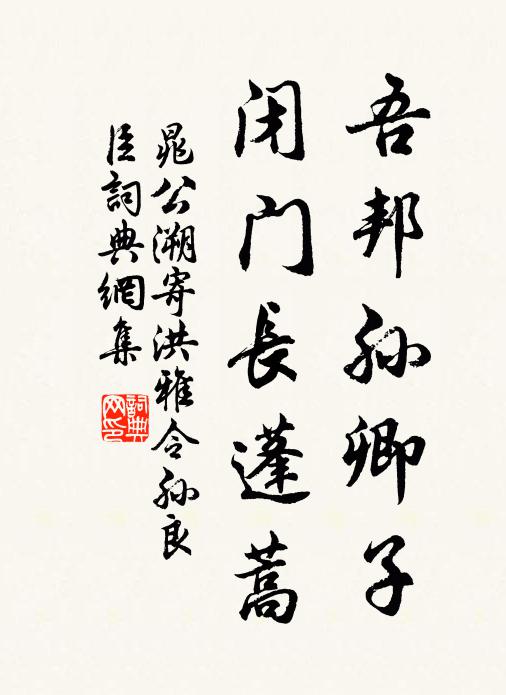 吾邦孙卿子
闭门長蓬蒿
晁公溯寄洪雅令孙良
臣詞典網集
詞典网印